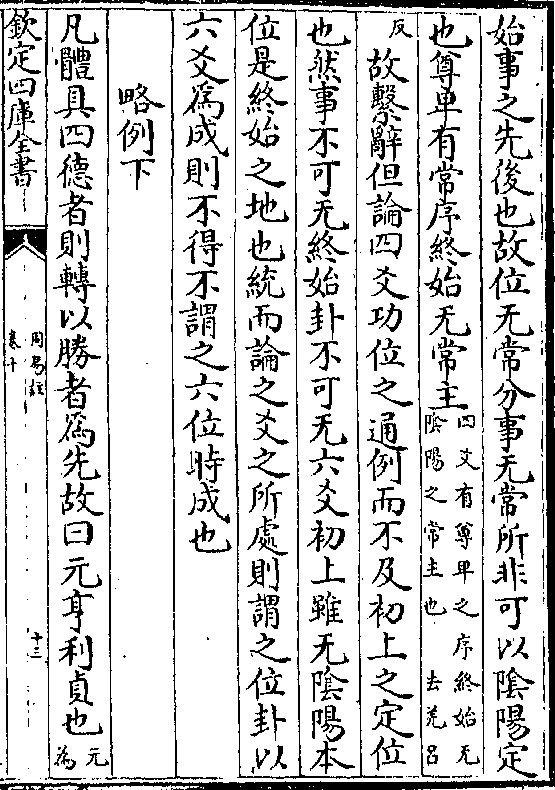 始事之先後也故位无常分事无常所非可以隂陽定
也尊卑有常序終始无常主四爻有尊卑之序終始无隂陽之常主也 去羌呂
反故繫辭但論四爻功位之通例而不及初上之定位
也然事不可无終始卦不可无六爻初上雖无隂陽本
位是終始之地也統而論之爻之所處則謂之位卦以
六爻爲成則不得不謂之六位時成也
略例下
凡體具四德者則轉以勝者爲先故曰元亨利貞也元爲
欽定四庫全書 周易註 卷十 十三